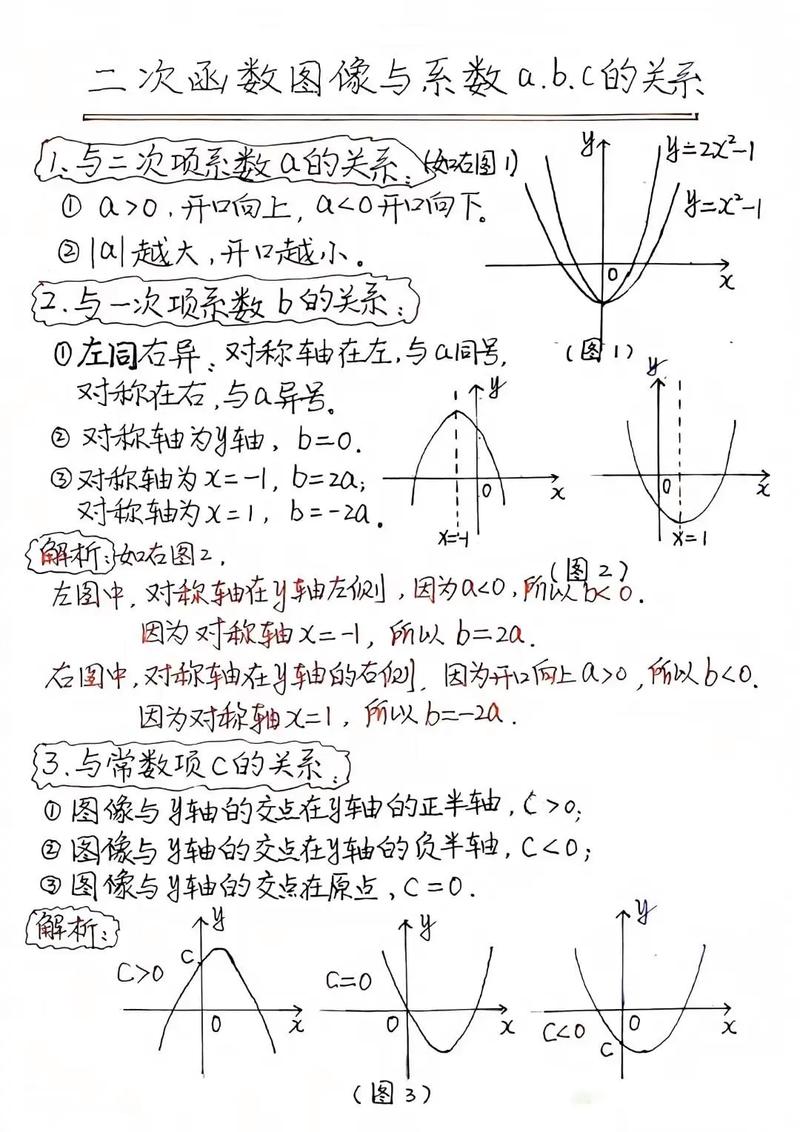 二次函数图像与系数a.b.c的关系
1.与二次项系数a的关系:(如右图1)
① a>0,开口向上,a<0开口向下。
② |a|越大,开口越小。
y
y=2x²-1
y=x²-1
O
x
(图1)
2.与一次项系数b的关系:
①左同右异:对称轴在左,与a同号,
对称在右,与a异号。
② 对称轴为y轴,b=0.
③对称轴为x=-1,b=2a;
对称轴为x=1,b=-2a.
y
O
x
x=-1
y
O
x
x=1
(图2)
解析:如右图2,
左图中,对称轴在y轴左侧,因为a<0,所以b<0.
因为对称轴x=-1,所以b=2a.
右图中,对称轴在y轴的右侧,因为开口向上a>0,所以b<0.
因为对称轴x=1,所以b=-2a.
3.与常数项c的关系:
① 图像与y轴的交点在y轴的正半轴,c>0;
② 图像与y轴的交点在y轴的负半轴,c<0;
③ 图像与y轴的交点在原点,c=0.
解析:
y
C
C>0
O
x
y
C=0
O
x
y
C<0
O
x
C
(图3)